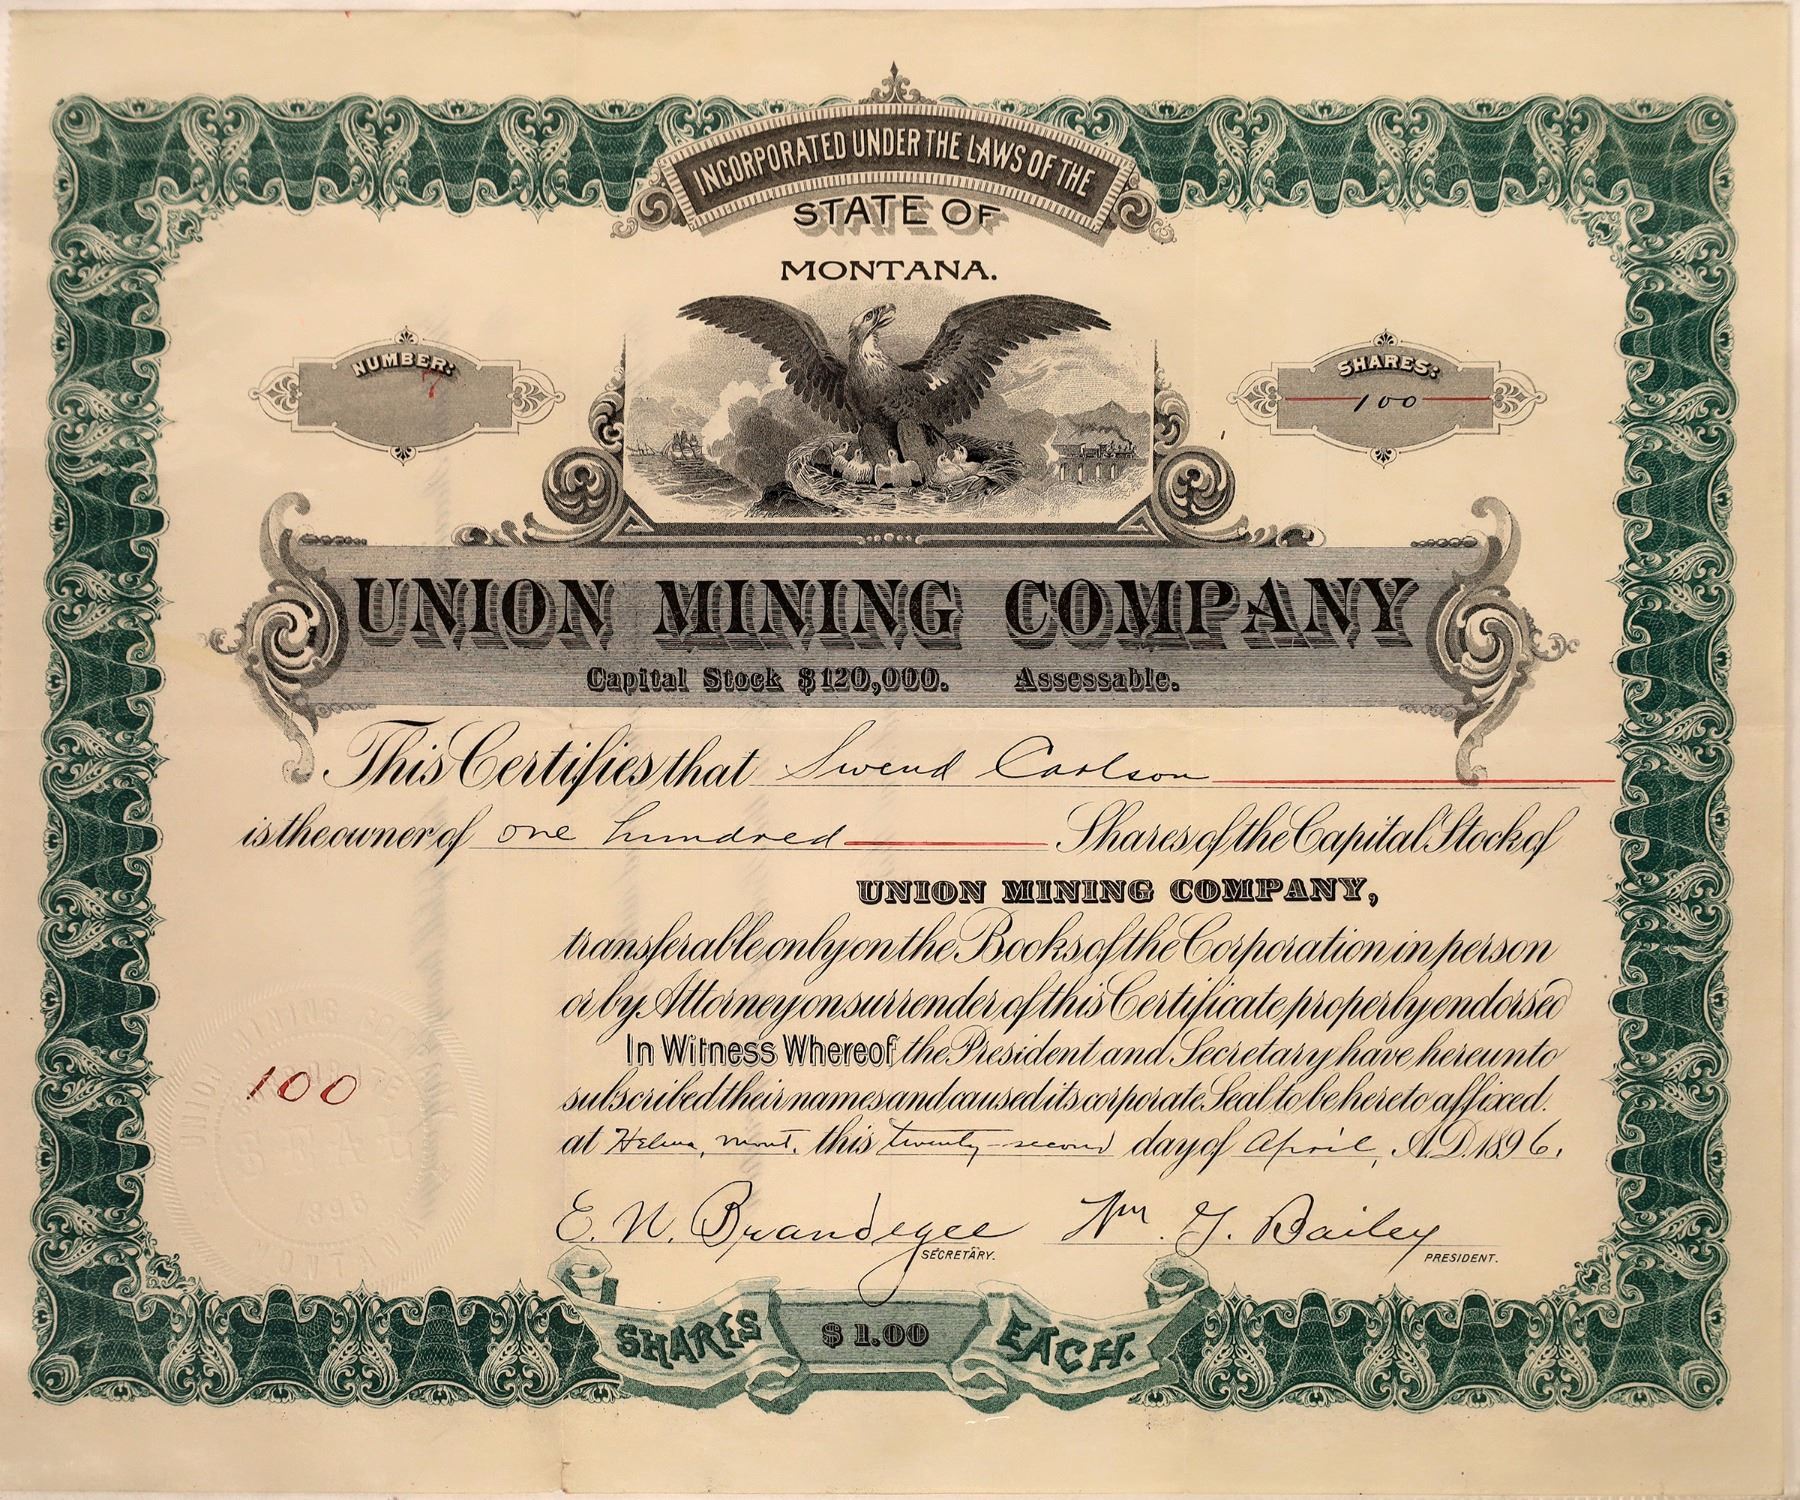 INCORPORATED UNDER THE LAWS OF THE
STATE OF
MONTANA.
NUMBER:
7
SHARES:
100
UNION MINING COMPANY
Capital Stock $120,000. Assessable.
This Certifies that Swend Carlson
is the owner of one hundred Shares of the Capital Stock of
UNION MINING COMPANY,
transferable only on the Books of the Corporation in person
or by Attorney on surrender of this Certificate properly endorsed
In Witness Whereof, the President and Secretary have hereunto
subscribed their names and caused its corporate Seal to be hereto affixed.
at Helena, Mont. this twenty-second day of April, A.D. 1896.
100
UNION MINING
SEAL
1896
MONTANA
E. N. Brandegee
SECRETARY.
Wm. G. Bailey
PRESIDENT.
SHARES $1.00 EACH.